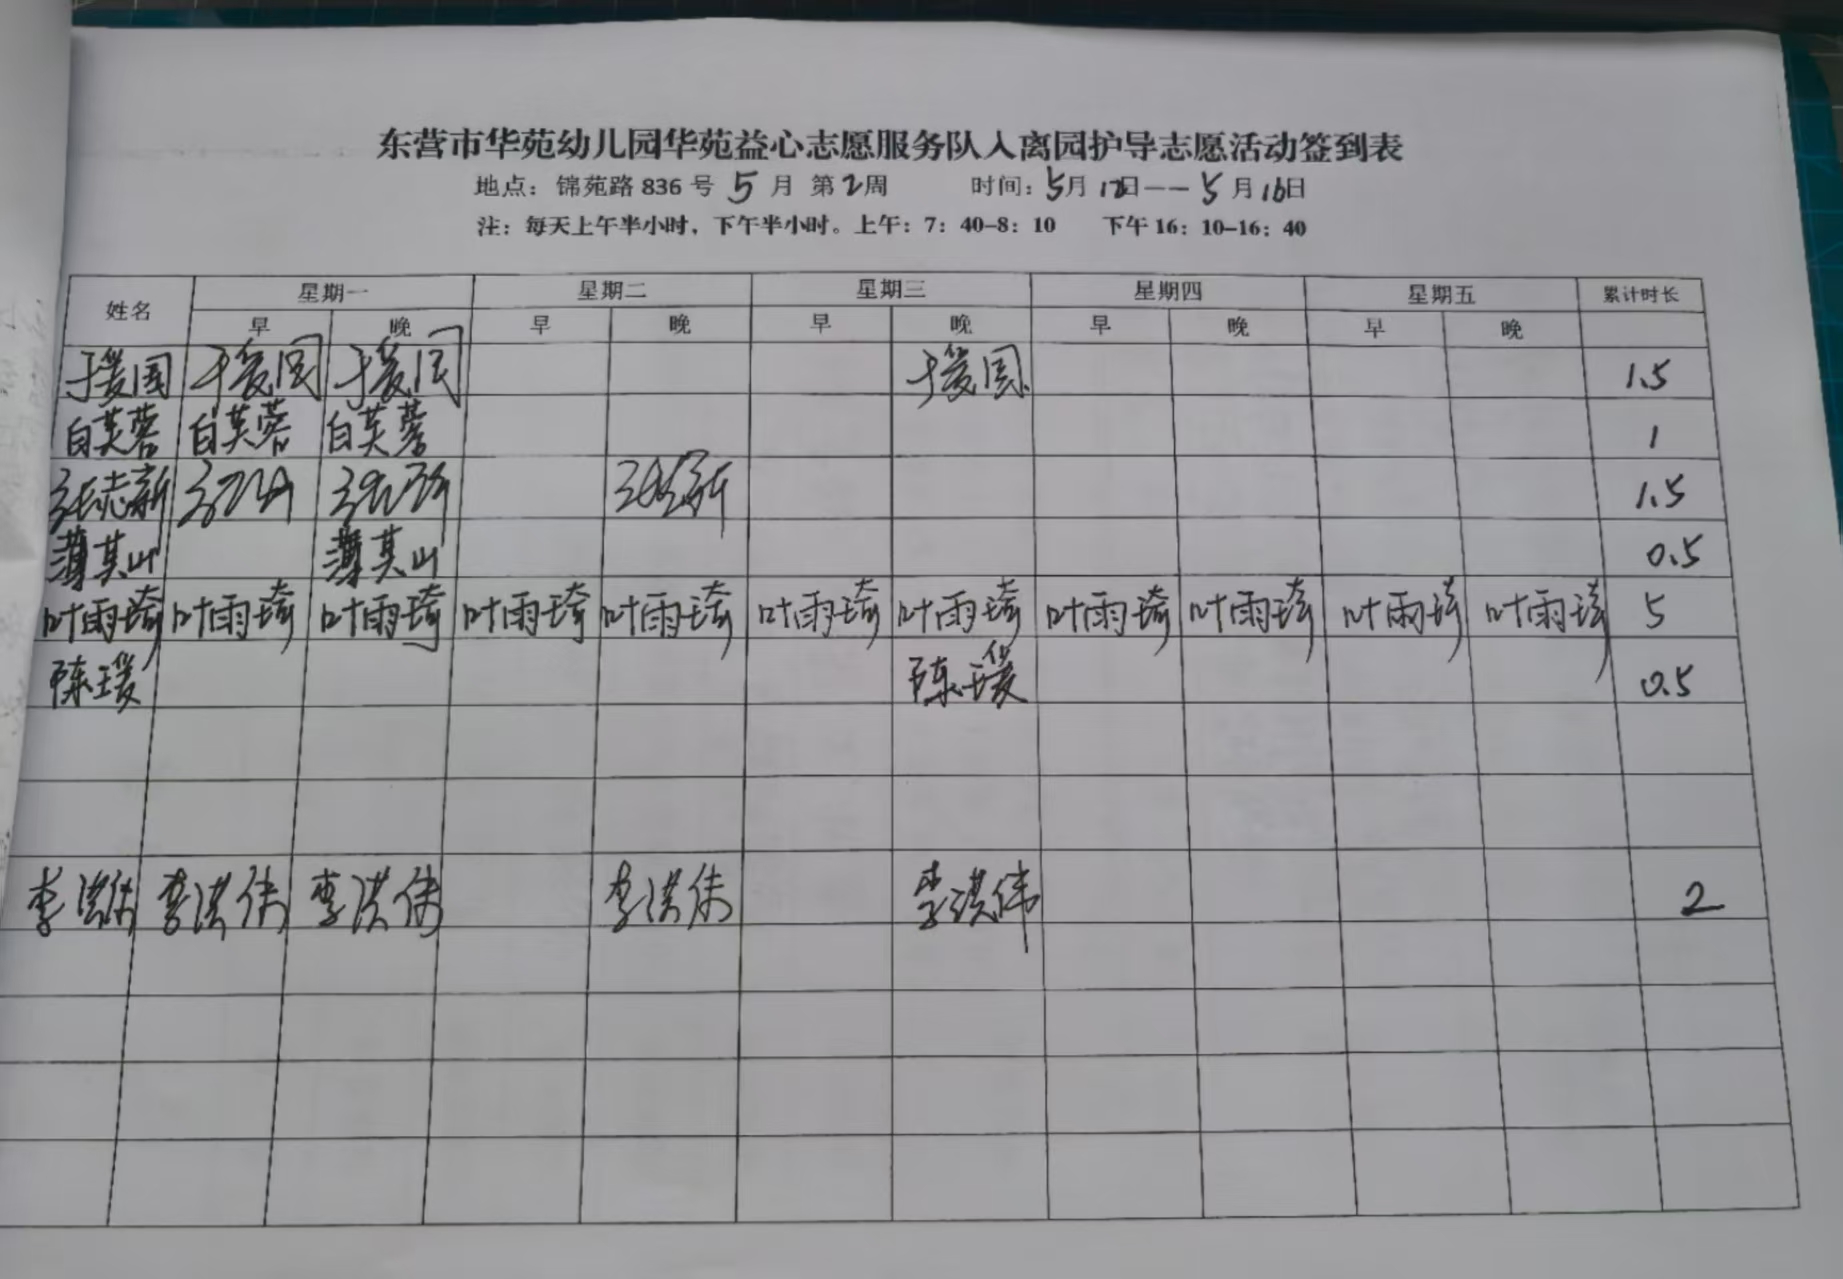 东营市华苑幼儿园华苑益心志愿服务队入离园护导志愿活动签到表
地点：锦苑路836号 5月 第2周 时间：5月12日——5月16日
注：每天上午半小时，下午半小时。上午：7：40-8：10 下午16：10-16：40
姓名 星期一 星期二 星期三 星期四 星期五 累计时长
早 晚 早 晚 早 晚 早 晚 早 晚
1.5
白芙蓉 白芙蓉 白芙蓉 1
张志新 1.5
薄其山 薄其山 0.5
叶雨琦 叶雨琦 叶雨琦 叶雨琦 叶雨琦 叶雨琦 叶雨琦 叶雨琦 叶雨琦 叶雨琦 叶雨琦 5
陈瑗 陈瑗 0.5
李洪伟 李洪伟 李洪伟 李洪伟 李洪伟 2